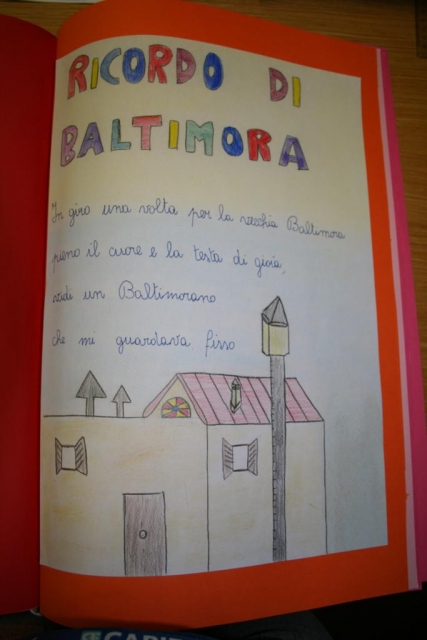 RICORDO DI
BALTIMORA
In giro una volta per la vecchia Baltimora
pieno il cuore e la testa di gioia,
vidi un Baltimorano
che mi guardava fisso